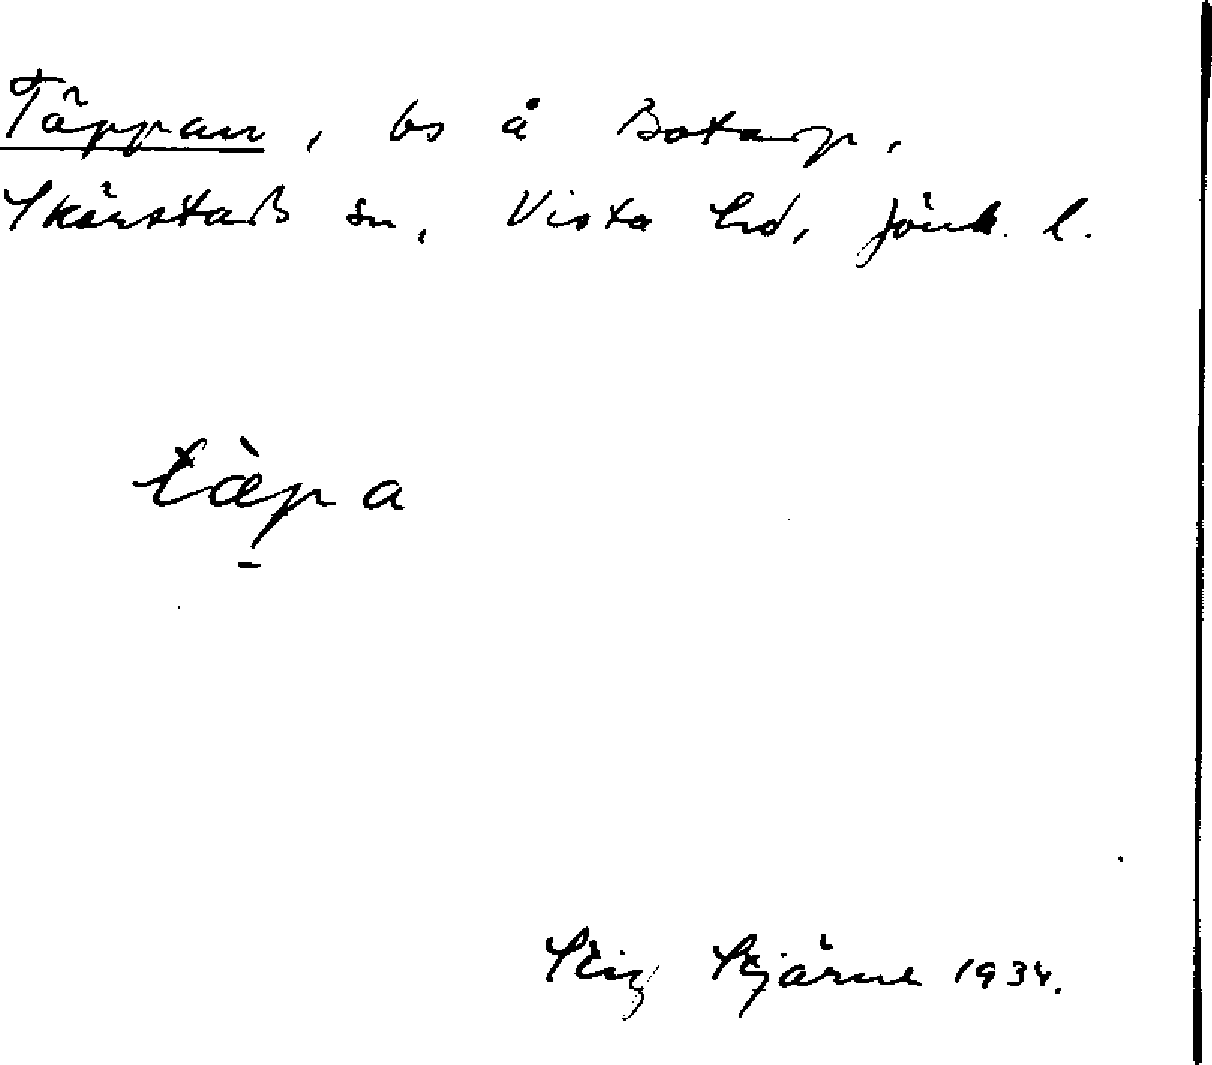 Täppan, bs å Botarp,
Skärstads sn, Vista hd, Jönk. l.
tæ̀p̠a
Stig Stjärne 1934.